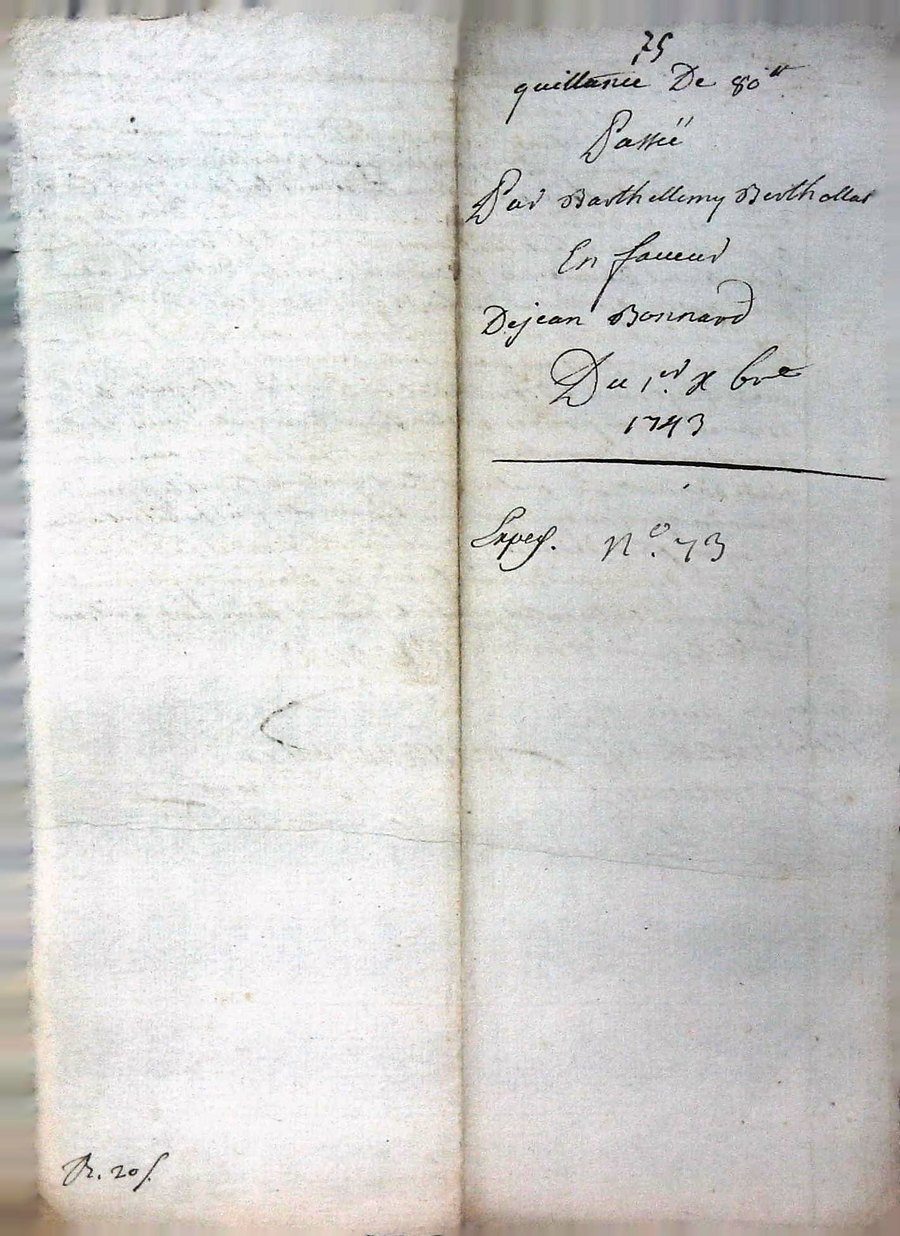 75
quittance De 80 ₶
Passée
Par Barthellemy Berthollat
En faveur
De jean Bonnard
Du 1er xbre
1743
Exped. N.o 73
R. 20 s.